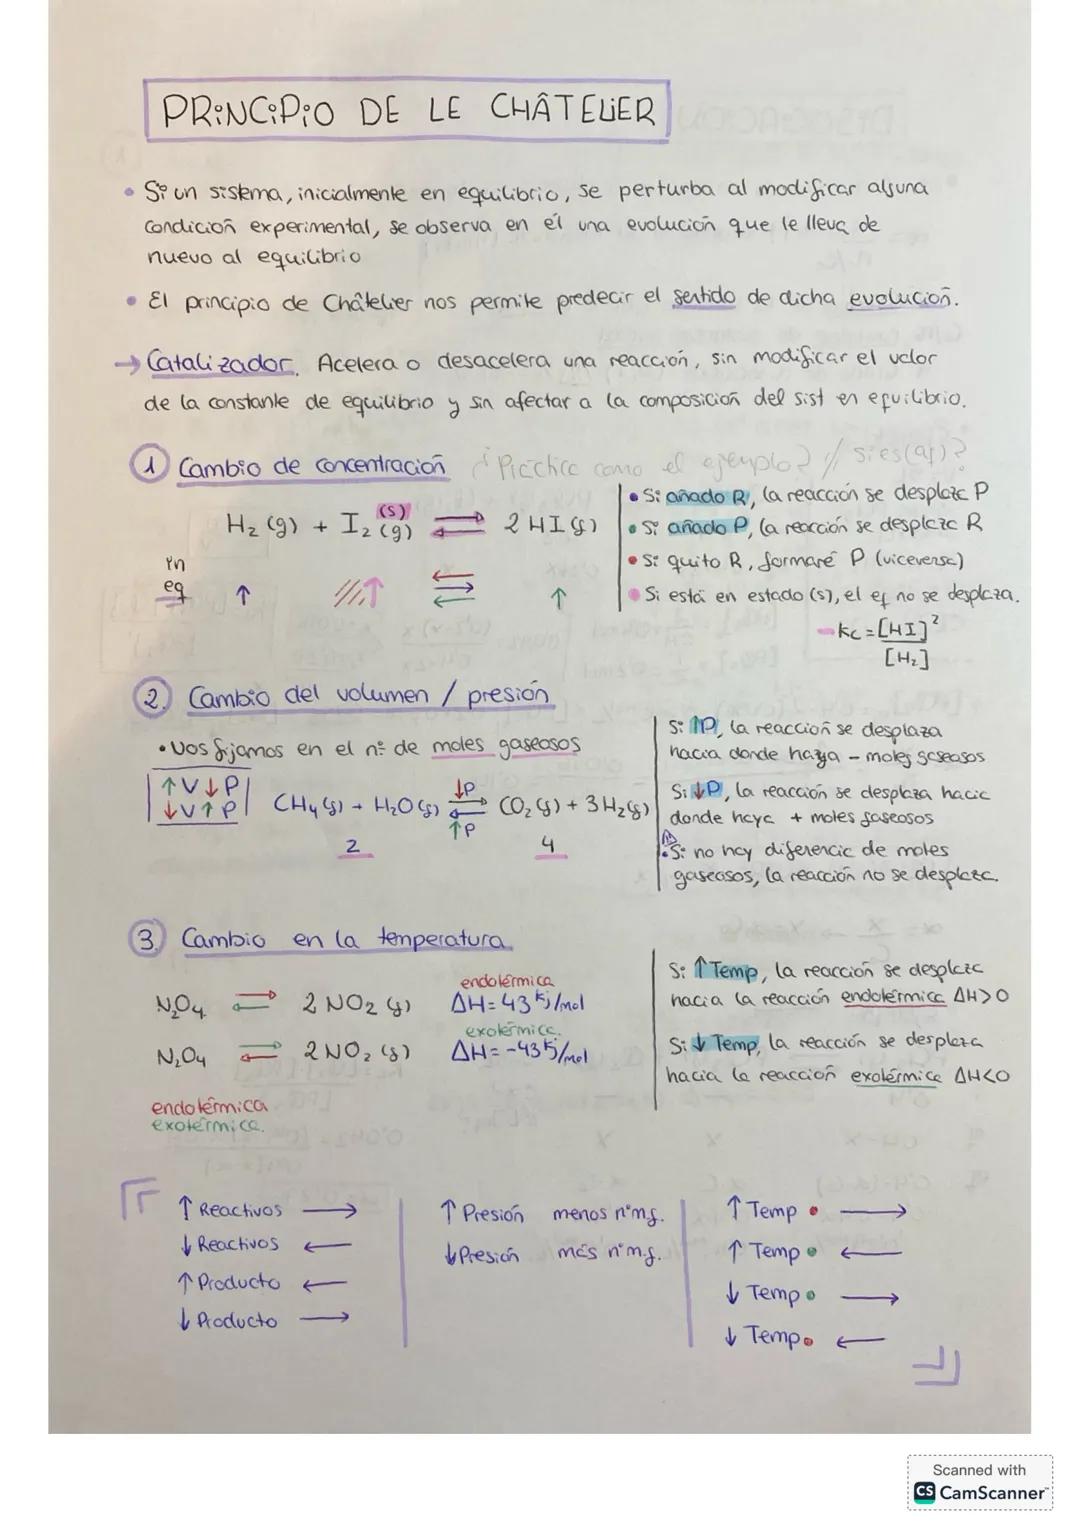 PRINCIPIO DE LE CHÂTELIER
• Si un sistema, inicialmente en equilibrio, se perturba al modificar alguna
condición experimental, se observa en él una evolución que le lleva de
nuevo al equilibrio
• El principio de Châtelier nos permite predecir el sentido de dicha evolución.
→ Catalizador. Acelera o desacelera una reacción, sin modificar el valor
de la constante de equilibrio y sin afectar a la composición del sist en equilibrio.
1 Cambio de concentración ¿ como el ejemplo? // si es (aq)?
H₂ (g) + I₂ (s) (g) ⇌ 2 HI (g)
en
eq ↑ ↑ ↑
• Si añado R, la reacción se desplaza P
• Si añado P, la reacción se desplaza R
• Si quito R, formaré P (viceversa)
• Si está en estado (s), el eq no se desplaza.
- Kc = [HI]²
[H₂]
2. Cambio del volumen / presión
• Nos fijamos en el nº de moles gaseosos
↑V↓P
↓V↑P
CH₄(g) + H₂O(g) ⇌ CO₂(g) + 3H₂(g)
↓P
↑P
2 4
Si ↑P, la reacción se desplaza
hacia donde haya - moles gaseosos
Si ↓P, la reacción se desplaza hacia
donde haya + moles gaseosos
• Si no hay diferencia de moles
gaseosos, la reacción no se desplaza.
3. Cambio en la temperatura
endotérmica
N₂O₄ ⇌ 2 NO₂ (g) ΔH = 43 kj/mol
exotérmica.
N₂O₄ ⇌ 2 NO₂ (g) ΔH = -43 kj/mol
endotérmica
exotérmica.
Si ↑ Temp, la reacción se desplaza
hacia la reacción endotérmica ΔH>0
Si ↓ Temp, la reacción se desplaza
hacia la reacción exotérmica ΔH<0
↑ Reactivos →
↓ Reactivos ←
↑ Producto ←
↓ Producto →
↑ Presión menos nºm.g.
↓ Presión más nºm.g.
↑ Temp • →
↑ Temp • ←
↓ Temp • →
↓ Temp • ←
Scanned with
CS CamScanner™